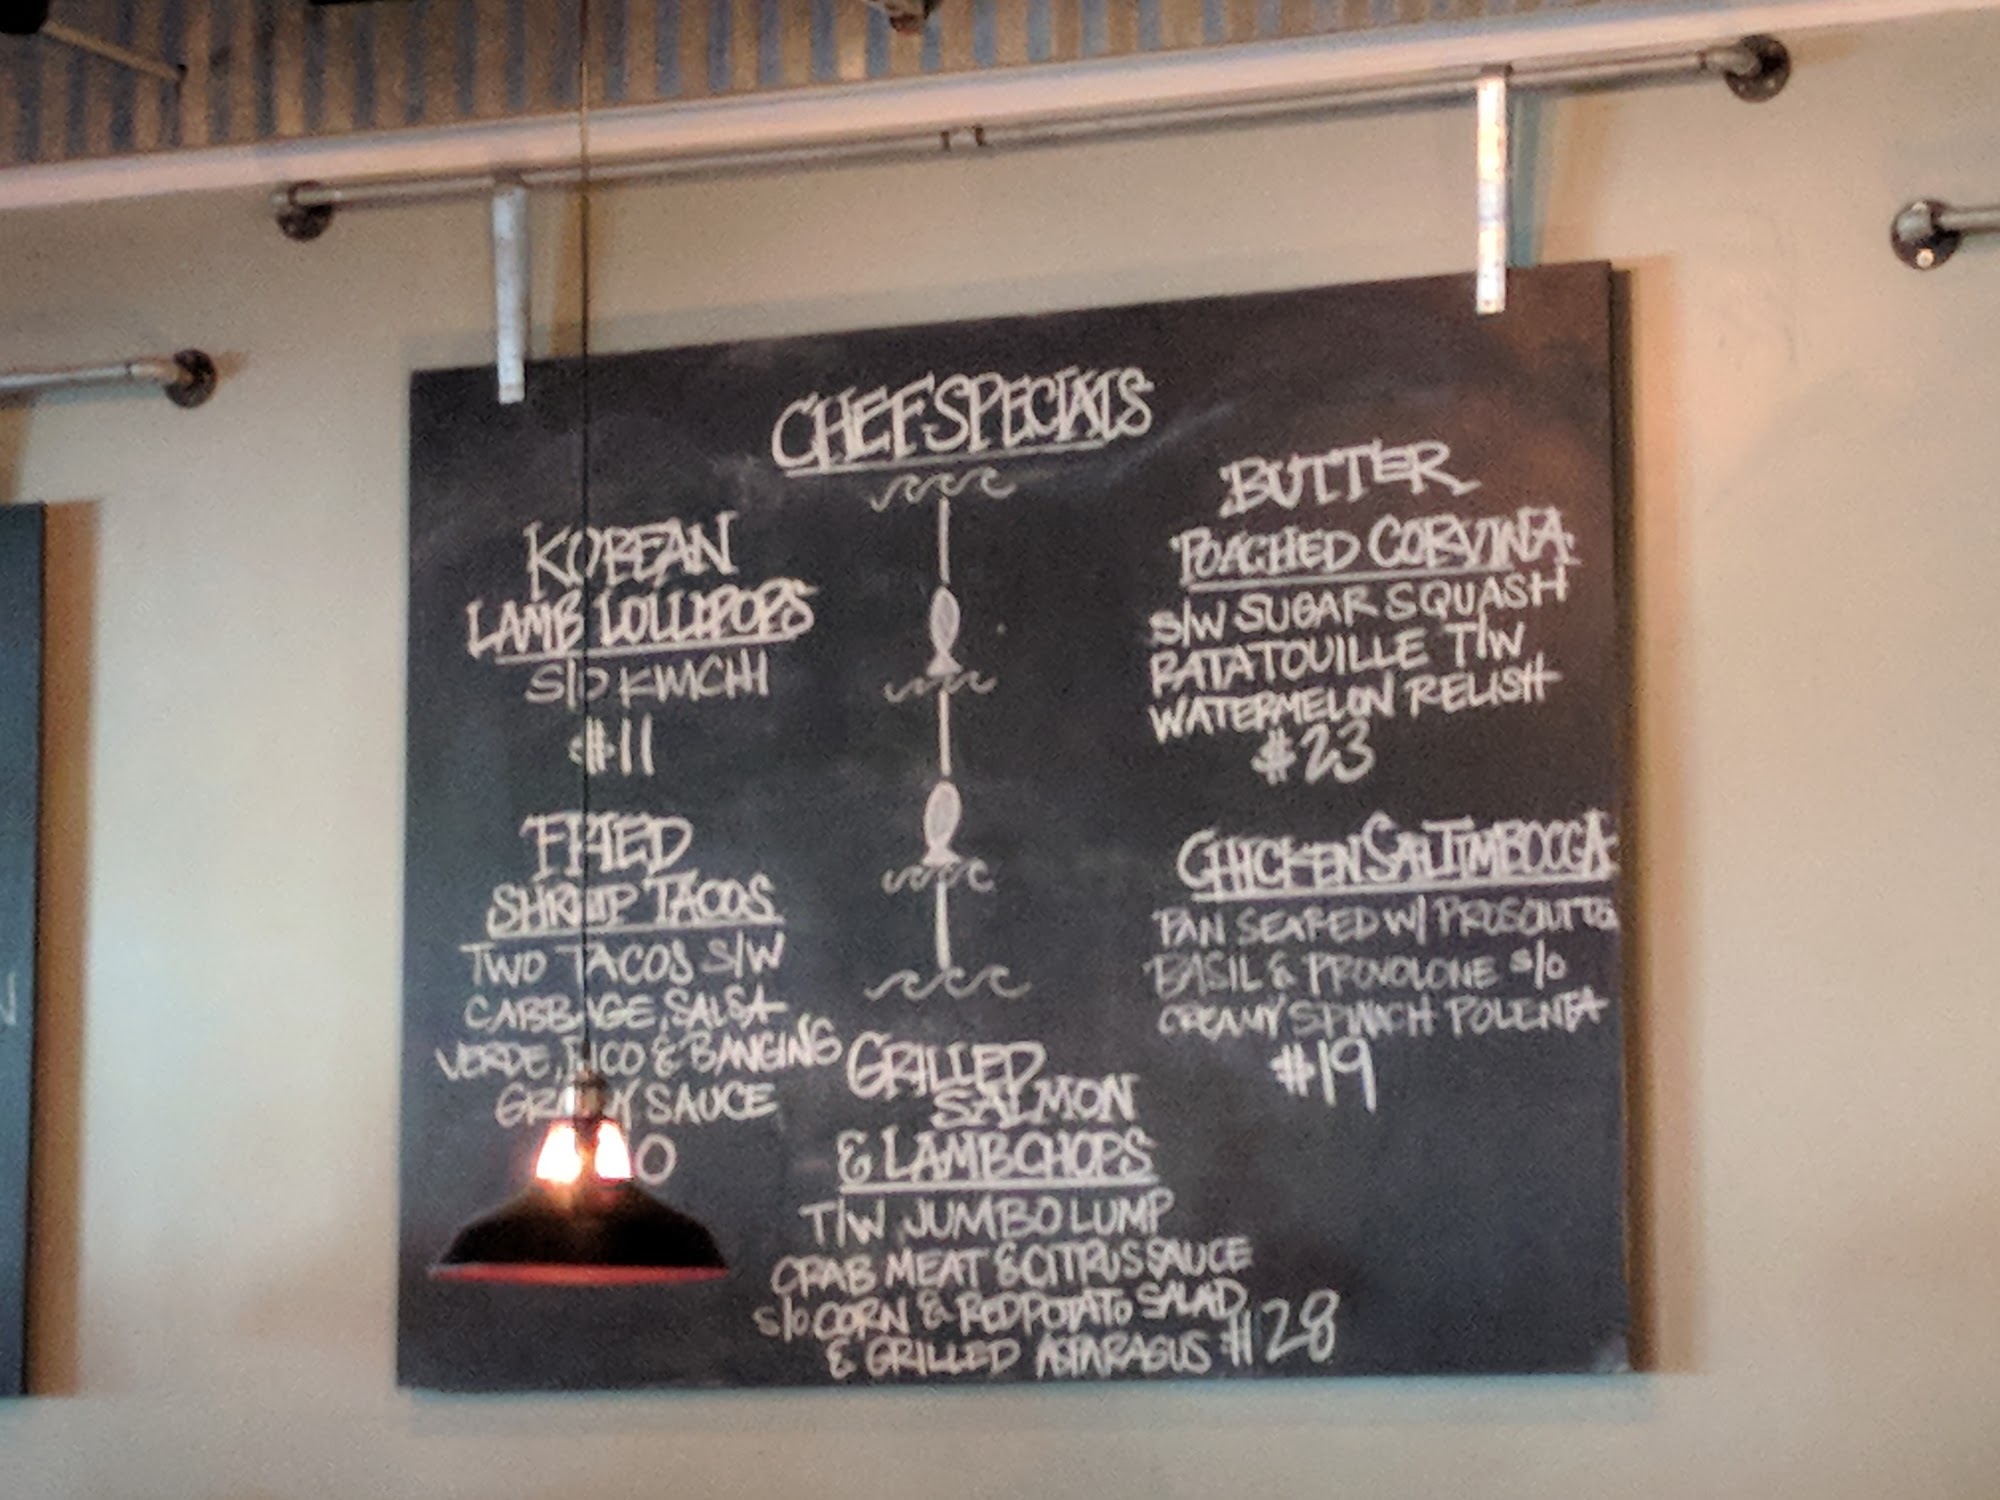 CHEF SPECIALS
KOREAN
LAMB LOLLIPOPS
S/O KIMCHI
$11
FRIED
SHRIMP TACOS
TWO TACOS S/W
CABBAGE, SALSA
VERDE, PICO & BANGING
SAUCE
BUTTER
POACHED CORVINA
S/W SUGAR SQUASH
RATATOUILLE T/W
WATERMELON RELISH
$23
CHICKEN SALTIMBOCCA
PAN SEARED W/ PROSCIUTTO
BASIL & PROVOLONE S/O
CREAMY SPINICH POLENTA
$19
GRILLED
SALMON
& LAMBCHOPS
T/W JUMBO LUMP
CRAB MEAT & CITRUS SAUCE
S/O CORN & RED POTATO SALAD
& GRILLED ASPARAGUS $28